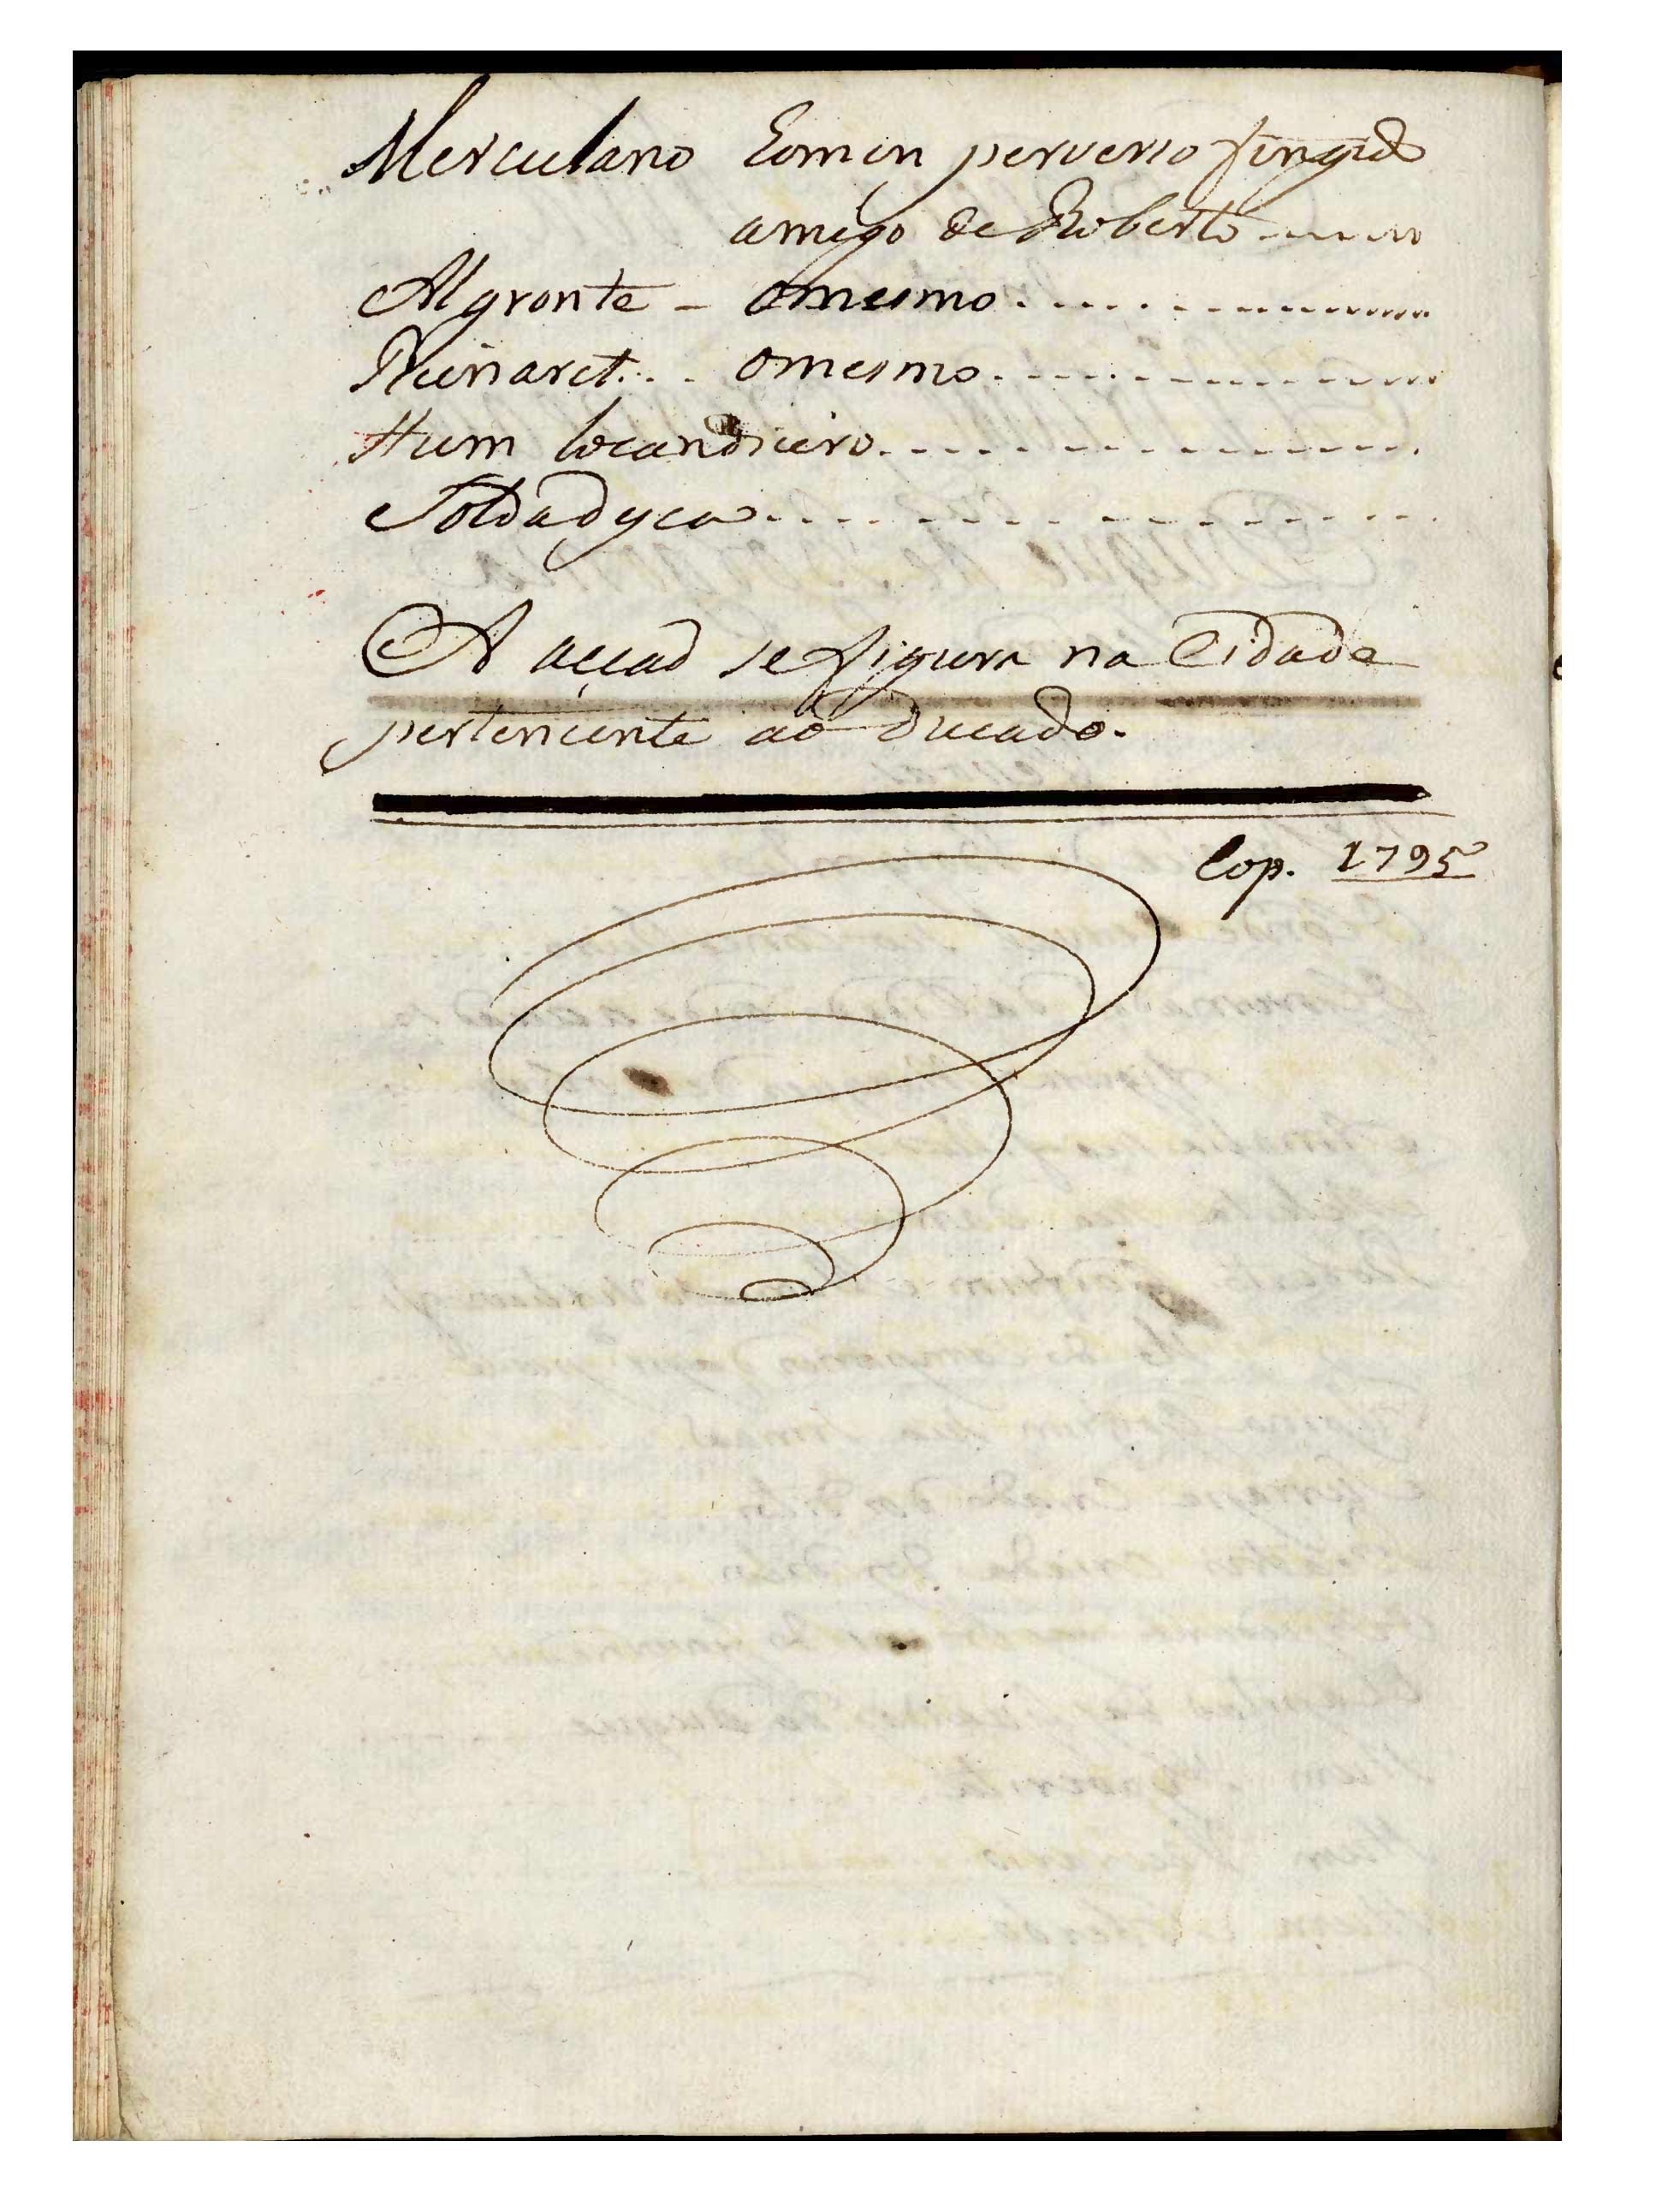 Merculano Eomin perverso fingido
amigo de Roberto
Algronte - o mesmo
Reinaret... o mesmo
Hum locandieiro
Soldadesca
A acçaõ se figura na Cidade
pertencente ao Ducado.
Cop. 1795